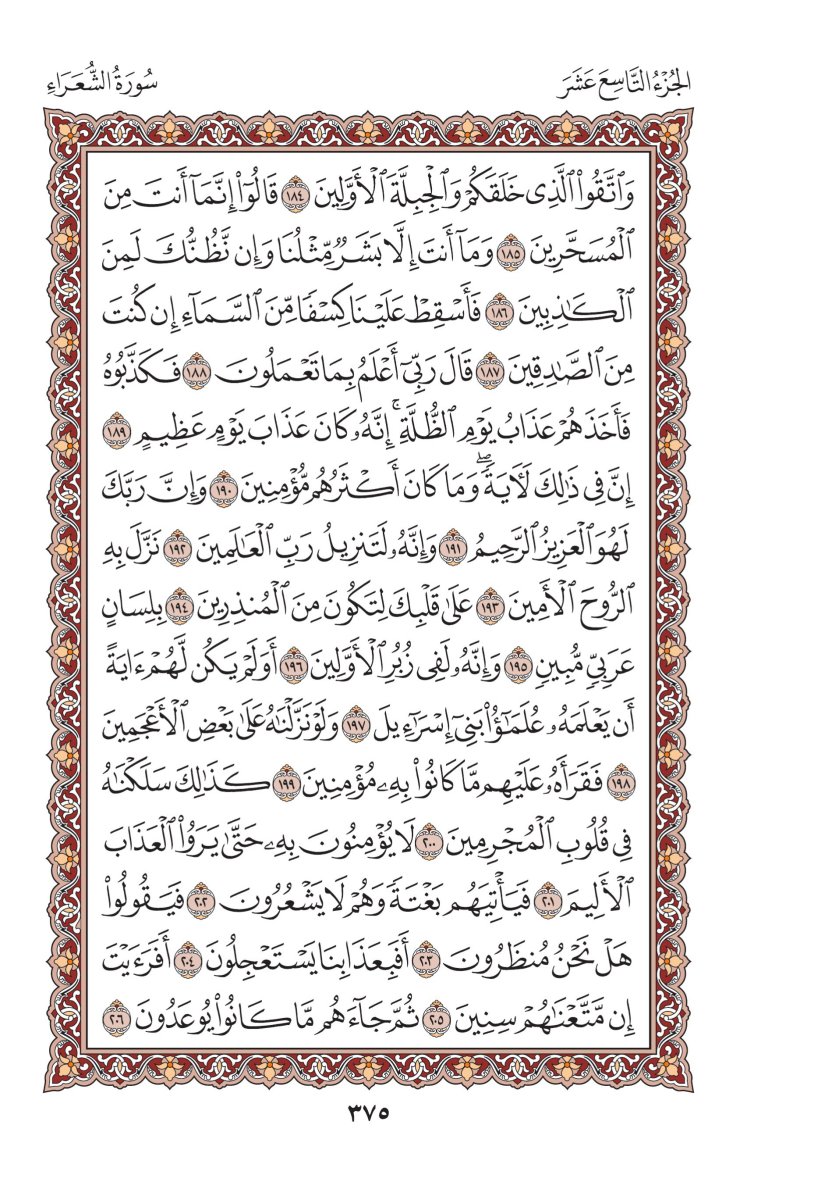 الجُزْءُ التَّاسِعَ عَشَرَ
سُورَةُ الشُّعَرَاءِ
وَٱتَّقُوا۟ ٱلَّذِى خَلَقَكُمْ وَٱلْجِبِلَّةَ ٱلْأَوَّلِينَ ١٨٤ قَالُوٓا۟ إِنَّمَآ أَنتَ مِنَ
ٱلْمُسَحَّرِينَ ١٨٥ وَمَآ أَنتَ إِلَّا بَشَرٌ مِّثْلُنَا وَإِن نَّظُنُّكَ لَمِنَ
ٱلْكَـٰذِبِينَ ١٨٦ فَأَسْقِطْ عَلَيْنَا كِسْفًا مِّنَ ٱلسَّمَآءِ إِن كُنتَ
مِنَ ٱلصَّـٰدِقِينَ ١٨٧ قَالَ رَبِّىٓ أَعْلَمُ بِمَا تَعْمَلُونَ ١٨٨ فَكَذَّبُوهُ
فَأَخَذَهُمْ عَذَابُ يَوْمِ ٱلظُّلَّةِ ۚ إِنَّهُۥ كَانَ عَذَابَ يَوْمٍ عَظِيمٍ ١٨٩
إِنَّ فِى ذَٰلِكَ لَـَٔايَةً ۖ وَمَا كَانَ أَكْثَرُهُم مُّؤْمِنِينَ ١٩٠ وَإِنَّ رَبَّكَ
لَهُوَ ٱلْعَزِيزُ ٱلرَّحِيمُ ١٩١ وَإِنَّهُۥ لَتَنزِيلُ رَبِّ ٱلْعَـٰلَمِينَ ١٩٢ نَزَّلَ بِهِ
ٱلرُّوحَ ٱلْأَمِينَ ١٩٣ عَلَىٰ قَلْبِكَ لِتَكُونَ مِنَ ٱلْمُنذِرِينَ ١٩٤ بِلِسَانٍ
عَرَبِىٍّ مُّبِينٍ ١٩٥ وَإِنَّهُۥ لَفِى زُبُرِ ٱلْأَوَّلِينَ ١٩٦ أَوَلَمْ يَكُن لَّهُمْ ءَايَةً
أَن يَعْلَمَهُۥ عُلَمَـٰٓؤُا۟ بَنِىٓ إِسْرَٰٓءِيلَ ١٩٧ وَلَوْ نَزَّلْنَـٰهُ عَلَىٰ بَعْضِ ٱلْأَعْجَمِينَ
١٩٨ فَقَرَأَهُۥ عَلَيْهِم مَّا كَانُوا۟ بِهِۦ مُؤْمِنِينَ ١٩٩ كَذَٰلِكَ سَلَكْنَـٰهُ
فِى قُلُوبِ ٱلْمُجْرِمِينَ ٢٠٠ لَا يُؤْمِنُونَ بِهِۦ حَتَّىٰ يَرَوُا۟ ٱلْعَذَابَ
ٱلْأَلِيمَ ٢٠١ فَيَأْتِيَهُم بَغْتَةً وَهُمْ لَا يَشْعُرُونَ ٢٠٢ فَيَقُولُوا۟
هَلْ نَحْنُ مُنظَرُونَ ٢٠٣ أَفَبِعَذَابِنَا يَسْتَعْجِلُونَ ٢٠٤ أَفَرَءَيْتَ
إِن مَّتَّعْنَـٰهُمْ سِنِينَ ٢٠٥ ثُمَّ جَآءَهُم مَّا كَانُوا۟ يُوعَدُونَ ٢٠٦
٣٧٥